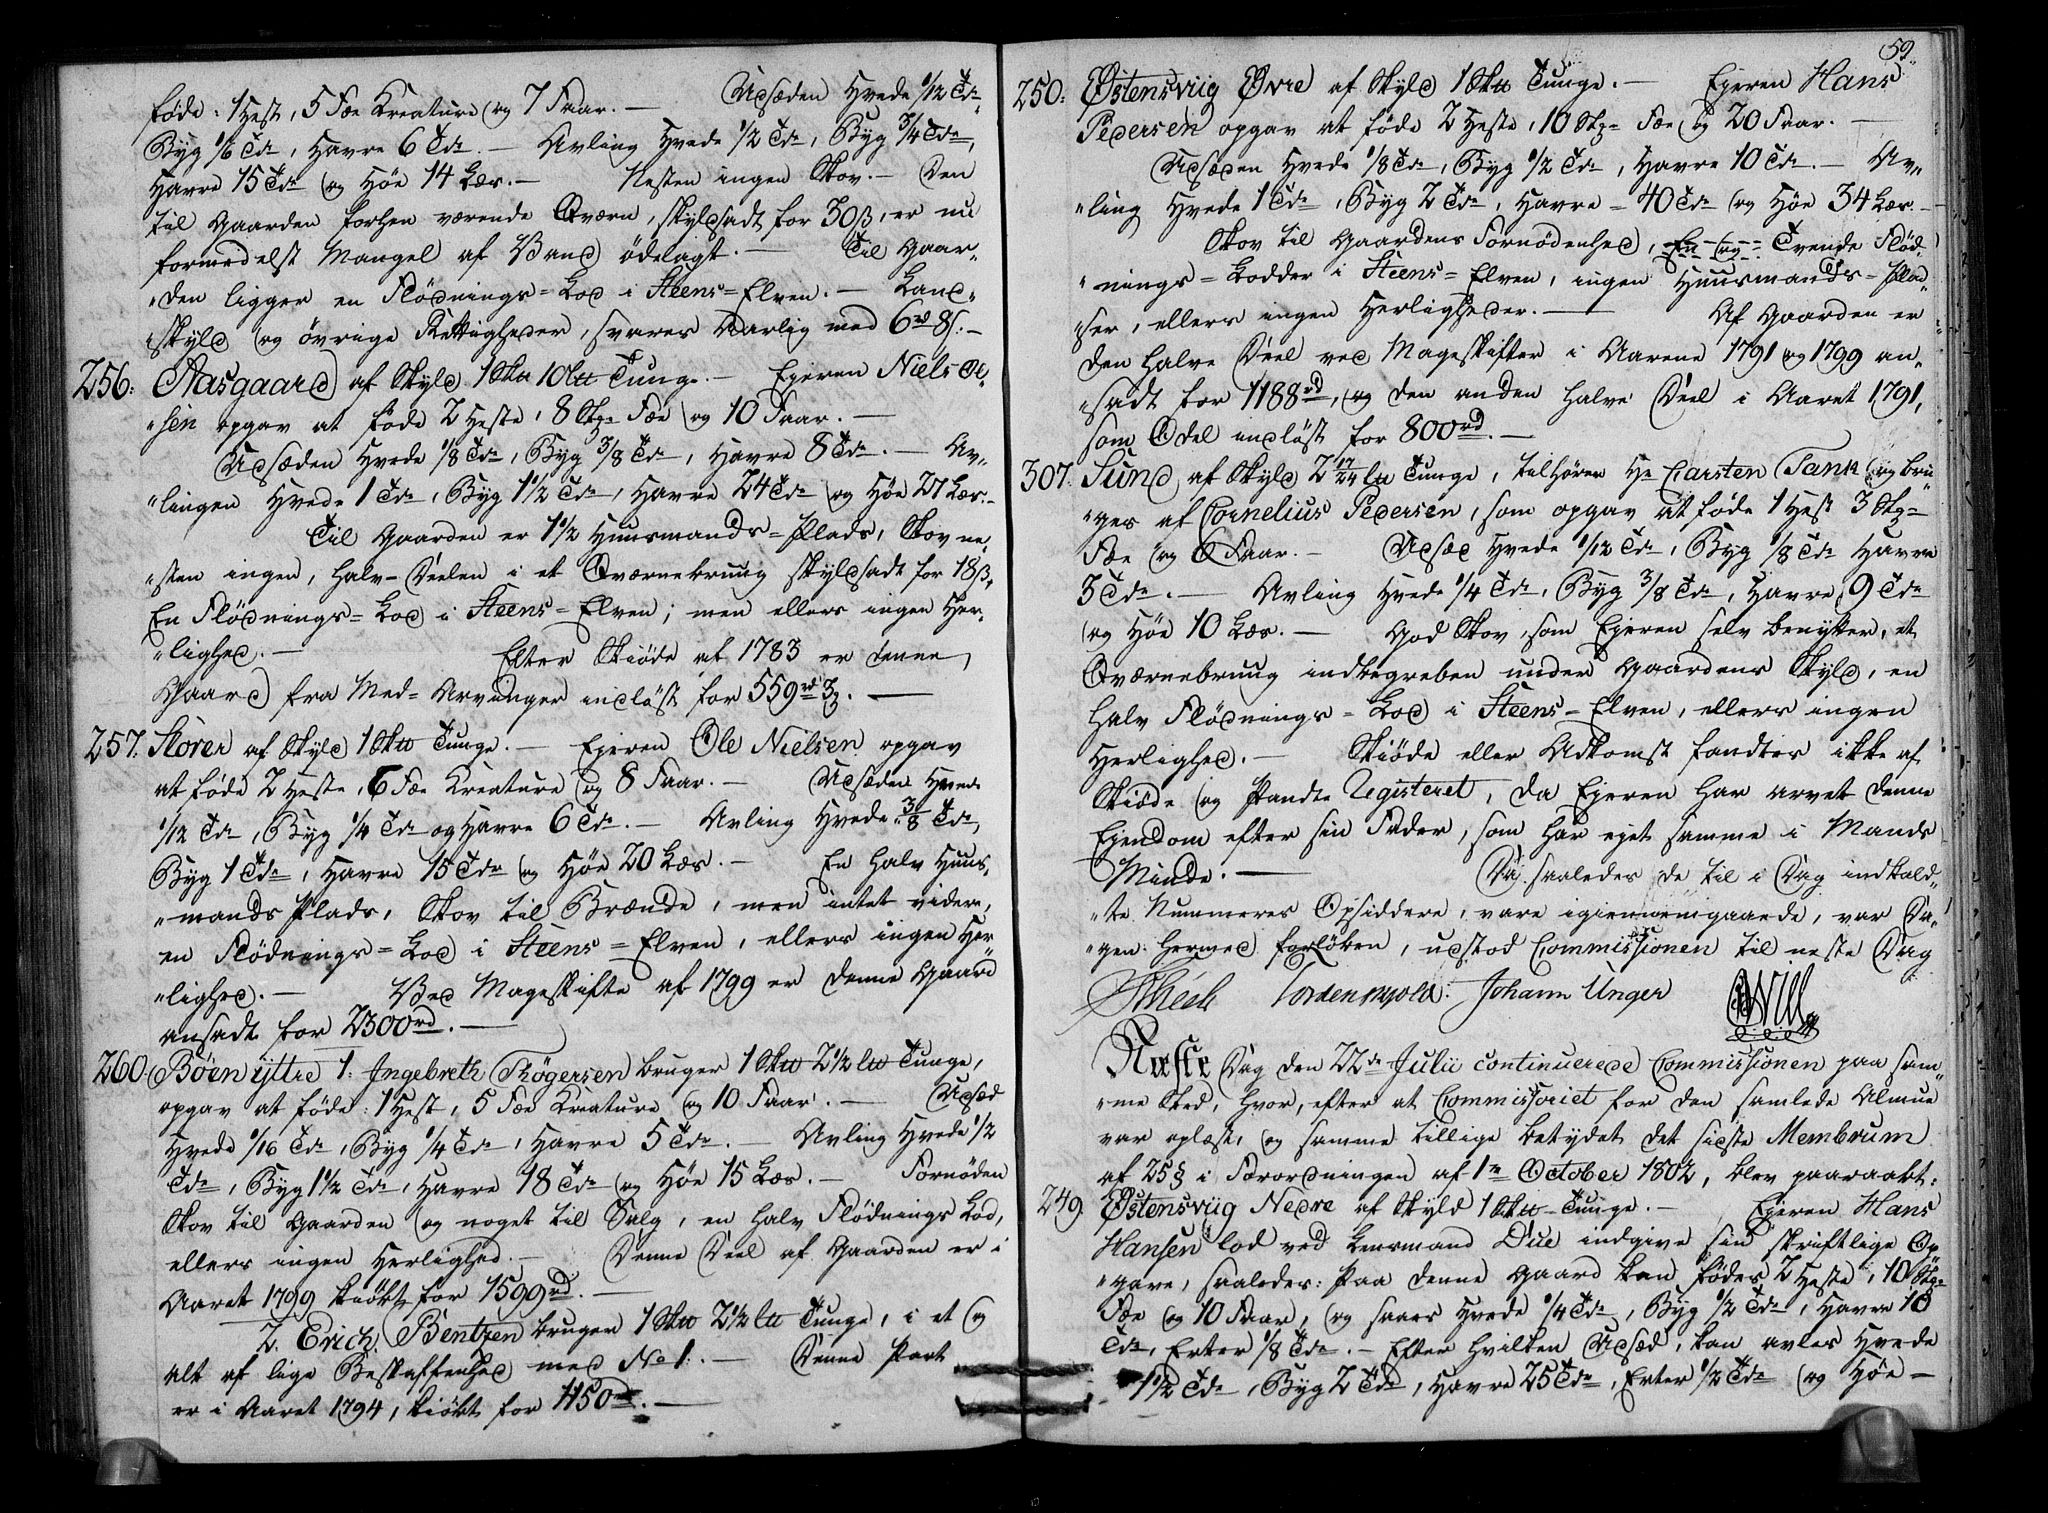 føde: 1 Hest, 5 Fæe Kreature og 7 Faar. — Udsæden Hvede 1/12 Tde
Byg 1/6 Tde, Havre 6 Tde. — Avling Hvede 1/2 Tde, Byg 3/4 Tde,
Havre 15 Tde og Høe 14 Læs. — Nesten ingen Skov. — Den
til Gaarden forhen værende Qværn, skyldsadt for 30ß, er nu
formedelst Mangel af Vand ödelagt. — Til Gaar„
„den ligger en Flödnings=Lod i Steens=Elven. — Land„
„skyld og övrige Rettigheder, svares Aarlig med 6rd 8ß. —
256: Aasgaard af Skyld 1 Sk℔ 10 L℔ Tunge. — Ejeren Niels Ol„
„sen opgav at føde 2 Heste, 8 Stk= Fæe og 10 Faar. —
Udsæden Hvede 1/8 Tde, Byg 3/8 Tde, Havre 8 Tde. — Av„
„lingen Hvede 1 Tde, Byg 1 1/2 Tde, Havre 24 Tde og Høe 27 Læs. —
Til Gaarden er 1 1/2 Huusmands=Plads, Skov ne„
„sten ingen, halv=Deelen i et Qværnebruug skyldsadt for 18ß.
En Flödnings=Lod i Steens=Elven; men ellers ingen Her„
„lighed. — Efter Skiöde af 1783 er denne
Gaard fra Med=Arvinger indlöst for 559rd 3
257. Storer af Skyld 1 Sk℔ Tunge. — Ejeren Ole Nielsen opgav
at føde 2 Heste, 6 Fæe Kreature og 8 Faar. — Udsæden Hvede
1/12 Tde, Byg 1/4 Tde og Havre 6 Tde. — Avling Hvede 3/8 Tde,
Byg 1 Tde, Havre 15 Tde og Høe 20 Læs. — En halv Huus„
„mands Plads, Skov til Brænde, men intet videre,
en Flödnings=Lod i Steens=Elven, ellers ingen Her
„lighed. — Ved Mageskifte af 1799 er denne Gaard
ansadt for 2300rd. —
260. Böen ijttre 1. Ingebreth Thøgersen bruger 1 Sk℔ 2 1/2 L℔ Tunge,
opgav at føde: 1 Hest, 5 Fæe Kreature og 10 Faar. — Udsæd
Hvede 1/16 Tde, Byg 1/4 Tde, Havre 5 Tde. — Avling Hvede 1/2
Tde, Byg 1 1/2 Tde, Havre 18 Tde og Høe 15 Læs. — Fornöden
Skov til Gaarden og noget til Salg, en halv Flödnings Lod,
ellers ingen Herlighed. — Denne Deel af Gaarden er i
Aaret 1799 kiöbt for 1599rd. —
2. Erich Bentzen bruger 1 Sk℔ 2 1/2 L℔ Tunge, i et og
alt af lige Beskaffenhed med No 1. — Denne Part
er i Aaret 1794, kiöbt for 1150rd. —
59.
250: Østensviig Øvre af Skyld 1 Sk℔ Tunge. — Ejeren Hans
Pedersen opgav at føde 2 Heste, 10 Stk= Fæe og 20 Faar. —
Udsæden Hvede 1/8 Tde, Byg 1/2 Tde, Havre 10 Tde. — Av„
„ling Hvede 1 Tde, Byg 2 Tde, Havre 40 Tde og Høe 34 Læs. —
Skov til Gaardens Fornödenhed, En og Tvende Flöd„
„nings=Lodder i Steens=Elven, ingen Huusmands=Plad„
„ser, ellers ingen Herligheder. — Af Gaarden er
den halve Deel ved Mageskifter i Aarene 1791 og 1799 an„
„sadt for 1188rd, og den anden halve Deel i Aaret 1791,
som Odel indlöst for 800rd. —
307. Sund af Skyld 2 17/24 L℔ Tunge, tilhører Hr Carsten Tank og bru„
„ges af Cornelius Pedersen, som opgav at føde 1 Hest 3 Stk=
Fæe og 6 Faar. — Udsæd Hvede 1/12 Tde, Byg 1/8 Tde Havre
3 Tde. — Avling Hvede 1/4 Tde, Byg 3/8 Tde, Havre 9 Tde
og Høe 10 Læs. — God Skov, som Ejeren selv benytter, et
Qværnebruug indbegreben under Gaardens Skyld, en
halv Flödnings=Lod i Steens=Elven, ellers ingen
Herlighed. — Skiöde eller Adkomst fandtes ikke af
Skiöde og Pandte Registeret, da Ejeren har arvet denne
Ejendom efter sin Fader, som har ejet samme i Mands
Minde. — Da saaledes de til i Dag indkald„
„te Nummeres Opsiddere, vare igiennemgaaede, var Da„
„gen hermed forløben, udstod Commissionen til neste Dag
Johann Unger
Næste Dag den 22de Julii continuerede Commissionen paa sam„
„me Sted, hvor, efter at Commissoriet for den samlede Almue
var oplæst, og samme tillige betydet det sidste Membrum
af 25§ i Forordningen af 1te October 1802, blev paaraabt:
249. Østensviig Nedre af Skyld 1 Sk℔ Tunge. — Ejeren Hans
Hansen lod ved Lensmand Due indgive sin skriftlige Op
„gave, saaledes: Paa denne Gaard kan födes 2 Heste, 10 Stk=
Fæe og 10 Faar, og saaes Hvede 1/4 Tde, Byg 1/2 Tde, Havre 10
Tde, Erter 1/8 Tde. — Efter hvilken Udsæd, kan avles Hvede
1 1/2 Tde, Byg 2 Tde, Havre 25 Tde, Erter 1/2 Tde og Høe —